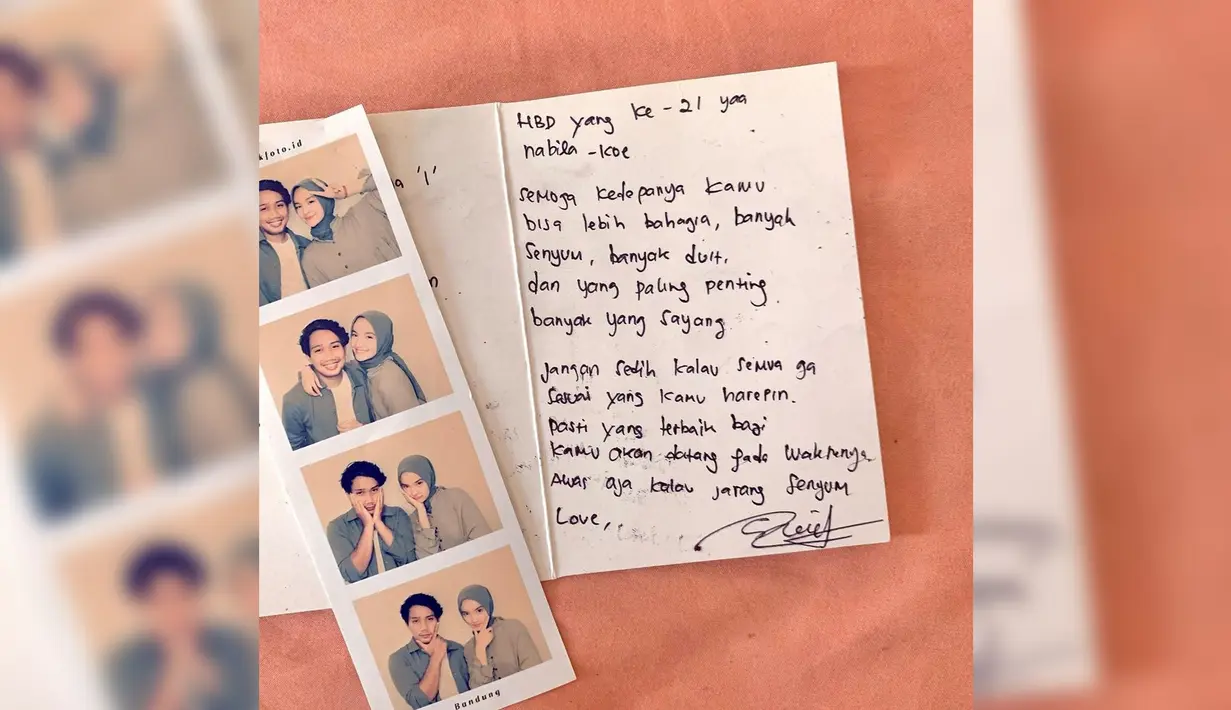 kfoto.id
a '1'
n
HBD yang ke-21 yaa
nabila-koe
semoga kedepanya kamu
bisa lebih bahagia, banyak
senyum, banyak duit,
dan yang paling penting
banyak yang sayang
jangan sedih kalau semua ga
sesuai yang kamu harepin.
pasti yang terbaik bagi
kamu akan datang pada waktunya
awas aja kalau jarang senyum
Love,
Bandung